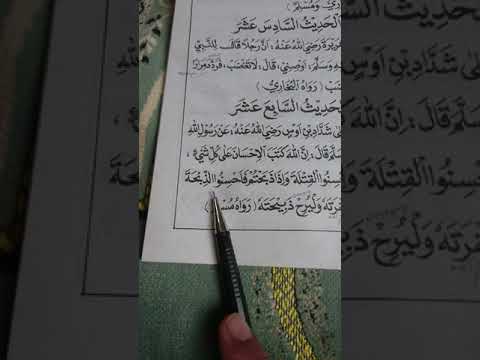 ـارِيُّ وَمُسْلِمٌ)
اَلْحَدِيْثُ السَّادِسَ عَشَرَ
ـرَيْرَةَ رَضِيَ اللهُ عَنْهُ، اَنَّ رَجُلاً قَالَ لِلنَّبِيِّ
ـهِ وَسَلَّمَ، اَوْصِنِيْ، قَالَ: لاَ تَغْضَبْ، فَرَدَّدَ مِرَارً
ـضَبْ (رَوَاهُ الْبُخَارِيُّ)
لْحَدِيْثُ السَّابِعَ عَشَرَ
ـلٰى شَدَّادِ بْنِ اَوْسٍ رَضِيَ اللهُ عَنْهُ، عَنْ رَسُوْلِ اللهِ
سَلَّمَ قَالَ: اِنَّ اللهَ كَتَبَ الْاِحْسَانَ عَلٰى كُلِّ شَيْءٍ،
ـسِنُوا الْقِتْلَةَ وَاِذَا ذَبَحْتُمْ فَاَحْسِنُوا الذِّبْحَةَ
ـفْرَتَهُ وَلْيُرِحْ ذَبِيْحَتَهُ (رَوَاهُ مُسْـ